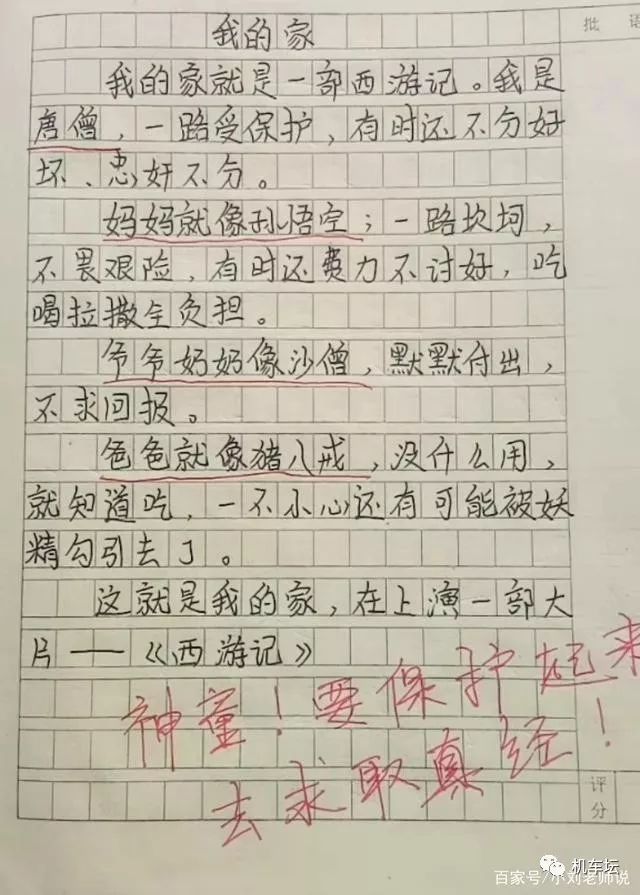 批 语
我的家
我的家就是一部西游记。我是
唐僧，一路受保护，有时还不分好
坏、忠奸不分。
妈妈就像孙悟空；一路坎坷，
不畏艰险，有时还费力不讨好，吃
喝拉撒全负担。
爷爷奶奶像沙僧，默默付出，
不求回报。
爸爸就像猪八戒，没什么用，
就知道吃，一不小心还有可能被妖
精勾引去了。
这就是我的家，在上演一部大
片——《西游记》
神童！要保护起来
去求取真经！
评
分
机车坛
百家号/小刘老师说